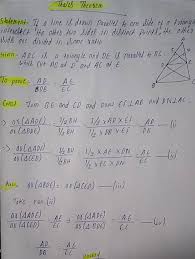 Thales Theorem
Statement:- If a line is drawn parallel to one side of a triangle
intersect the other two sides in distinct points, the other
sides are divided in same ratio
Given:- ABC is a triangle and DE is parallel to BC
which cut AB at D and AC at E
To prove:- AD/DB = AE/EC
Join BE and CD and draw EF⊥AB and DN⊥AC
ar(ΔADE)/ar(ΔBDE) = ½ BH/½ BH = ½ × AD × EF/½ × DB × EF = AD/DB —(i)
ar(ΔADE)/ar(ΔCED) = ½ BH/½ BH = ½ × AE × DN/½ × EC × DN = AE/EC —(ii)
ar(ΔBDE) = ar(ΔCED) —(iii)
from (ii)
ar(ΔADE)/ar(ΔBDE) = AE/EC —(iv)
AD/DB = AE/EC
Proved